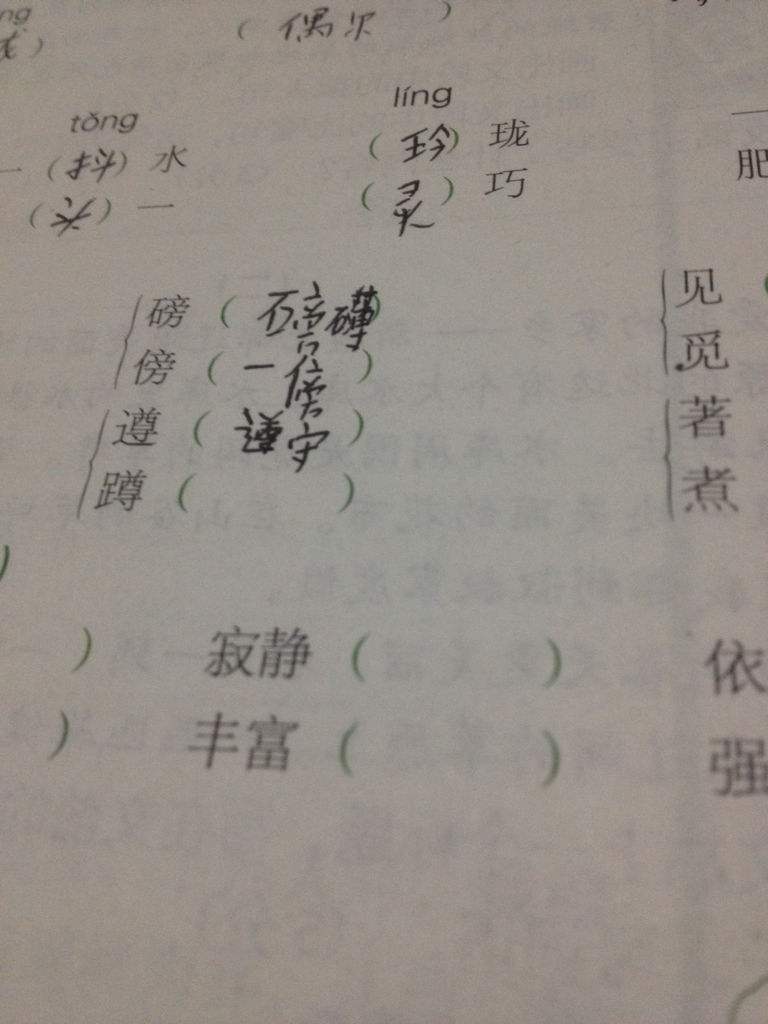 ( 偶尔 )
tǒng líng
一 ( 抖 ) 水 ( 玲 ) 珑
( ) 一 ( 灵 ) 巧 肥
磅 ( 磅礴 ) 见
傍 ( 一傍 ) 觅
遵 ( 遵守 ) 著
蹲 ( ) 煮
) 寂静 ( ) 依
) 丰富 ( ) 强